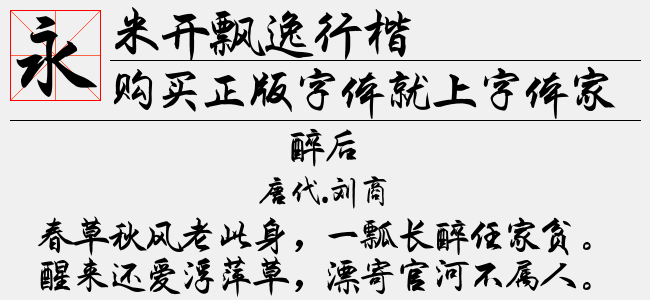 永
米开飘逸行楷
购买正版字体就上字体家
醉后
唐代.刘商
春草秋风老此身，一瓢长醉任家贫。
醒来还爱浮萍草，漂寄官河不属人。